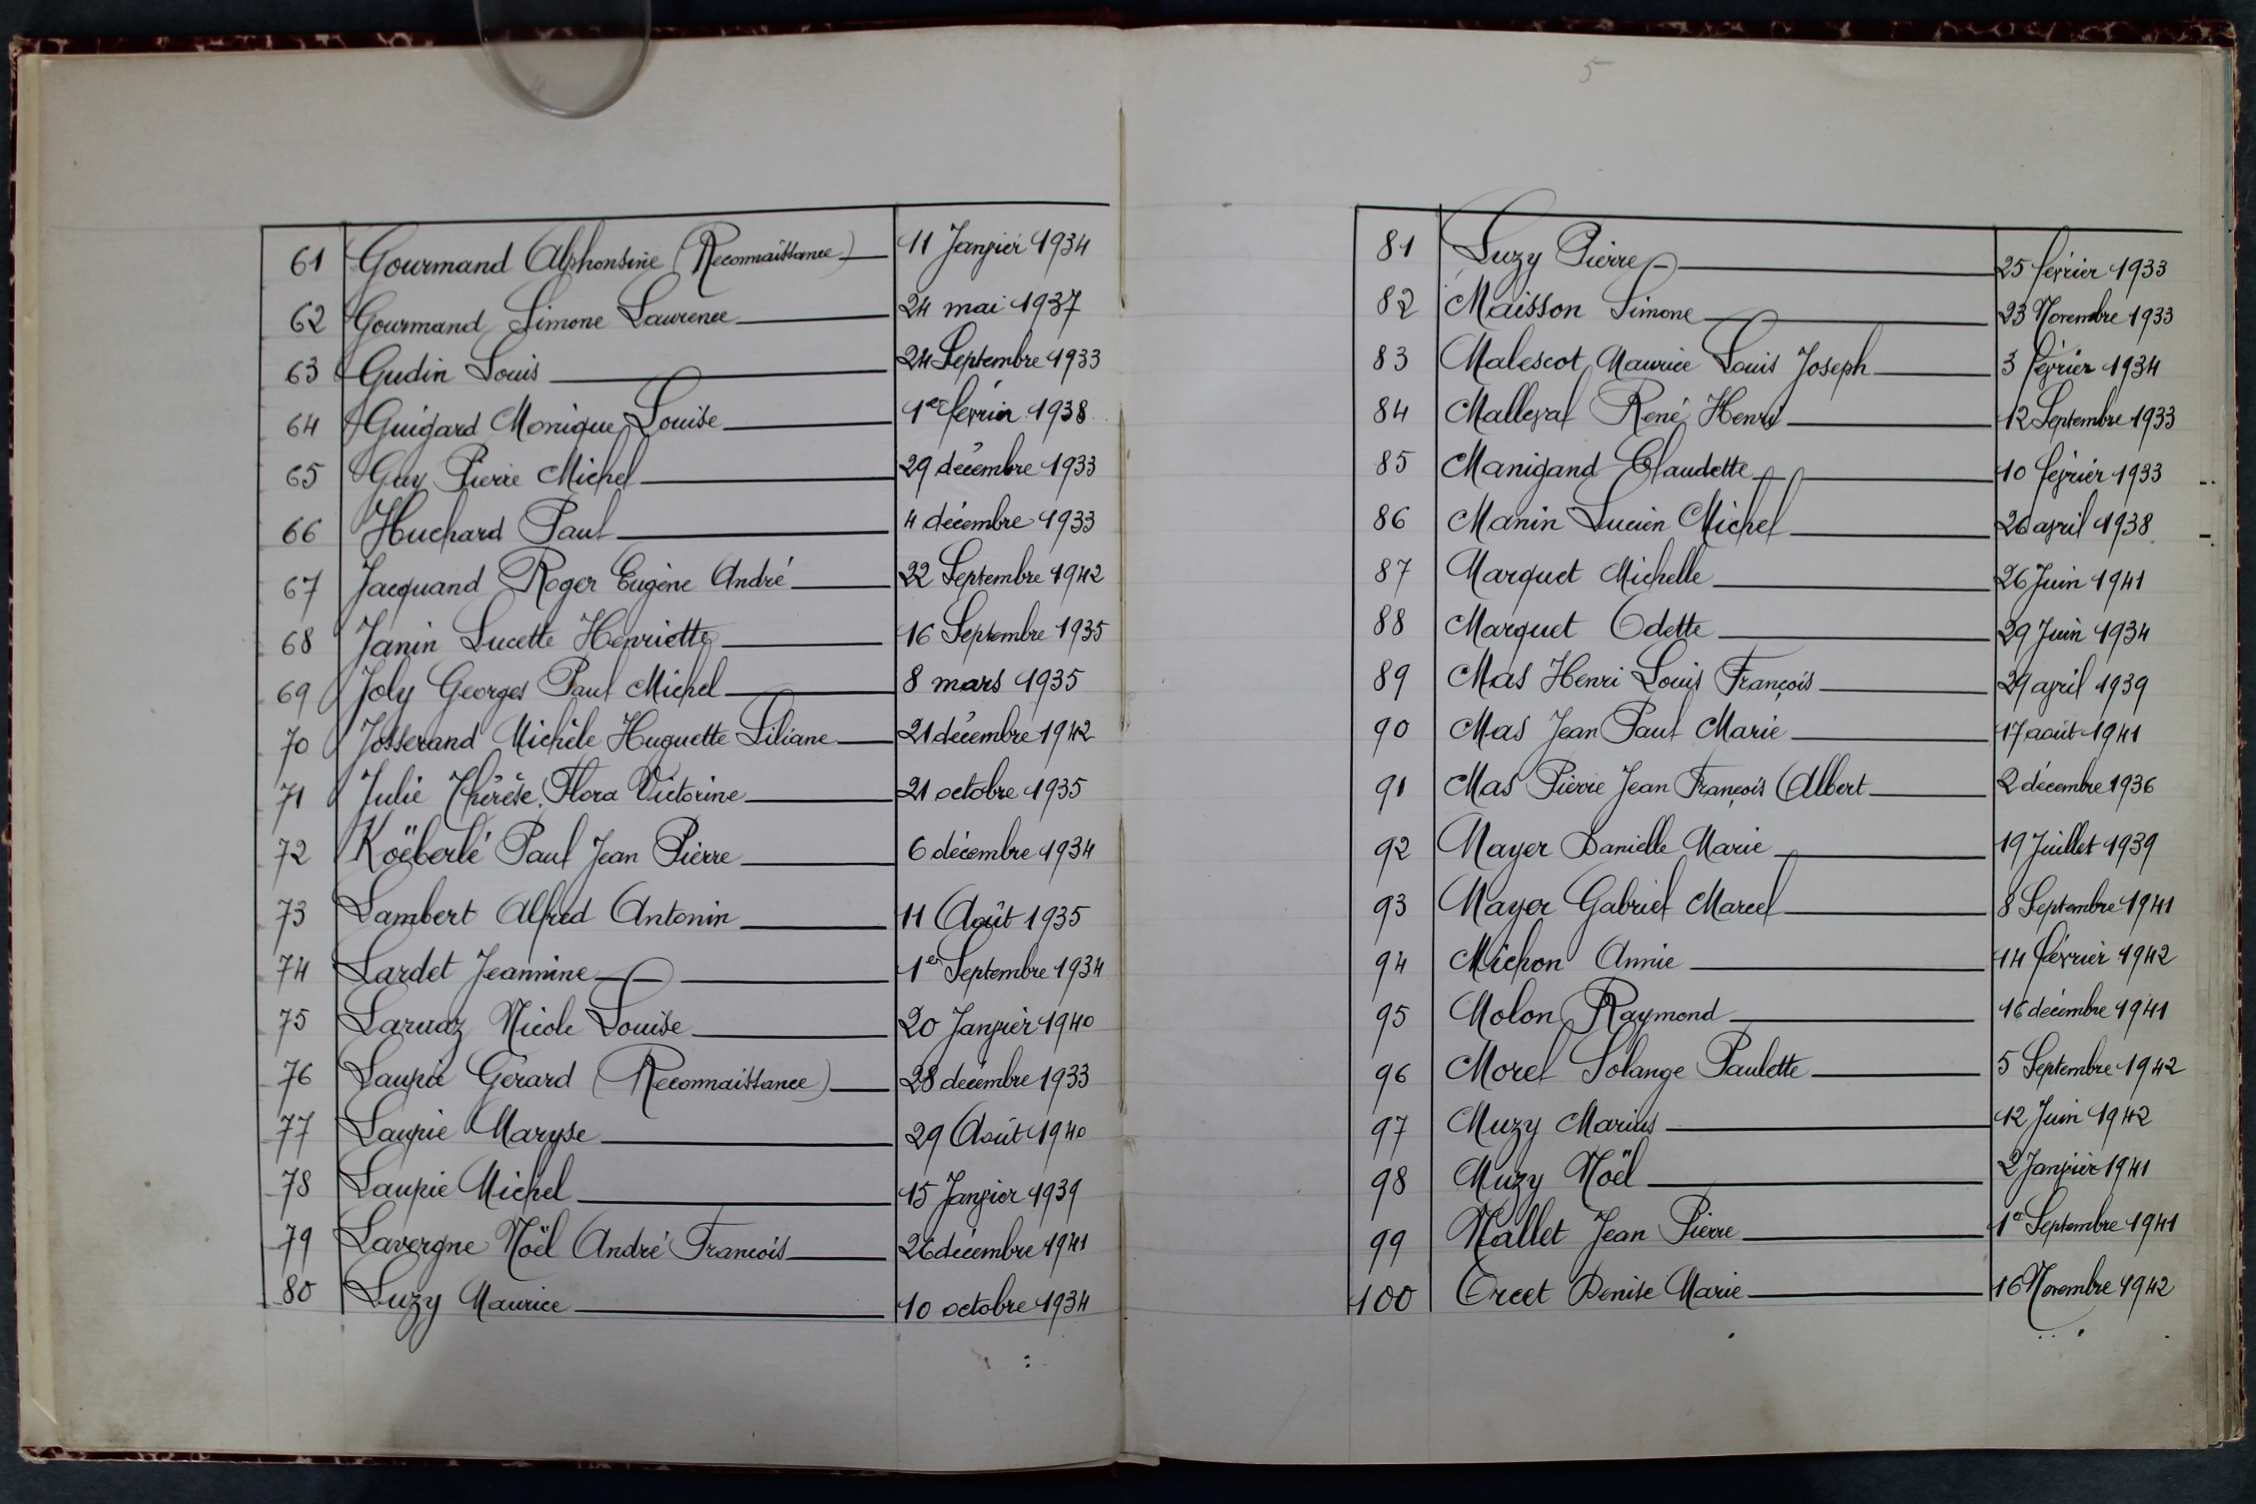 61 Gourmand Alphonsine (Reconnaissance) 11 Janvier 1934
62 Gourmand Simone Laurence 24 mai 1937
63 Gudin Louis 24 Septembre 1933
64 Guigard Monique Louise 1er février 1938
65 Guy Pierre Michel 29 décembre 1933
66 Huchard Paul 4 décembre 1933
67 Jacquand Roger Eugène André 22 Septembre 1942
68 Janin Lucette Henriette 16 Septembre 1935
69 Joly Georges Paul Michel 8 mars 1935
70 Josserand Michèle Huguette Liliane 21 décembre 1942
71 Julie Thérèse Flora Victorine 21 octobre 1935
72 Koëberlé Paul Jean Pierre 6 décembre 1934
73 Lambert Alfred Antonin 11 Août 1935
74 Lardet Jeannine 1er Septembre 1934
75 Laruaz Nicole Louise 20 Janvier 1940
76 Laupie Gérard (Reconnaissance) 28 décembre 1933
77 Laupie Maryse 29 Août 1940
78 Laupie Michel 15 Janvier 1939
79 Lavergne Noël André François 26 décembre 1941
80 Luzy Maurice 10 octobre 1934
5
81 Luzy Pierre 25 février 1933
82 Maisson Simone 23 Novembre 1933
83 Malescot Maurice Louis Joseph 3 février 1934
84 Malleval René Henri 12 Septembre 1933
85 Manigand Claudette 10 février 1933
86 Manin Lucien Michel 20 avril 1938
87 Marquet Michelle 26 Juin 1941
88 Marquet Odette 29 Juin 1934
89 Mas Henri Louis François 29 avril 1939
90 Mas Jean Paul Marie 17 août 1941
91 Mas Pierre Jean François Albert 2 décembre 1936
92 Mayer Danielle Marie 19 Juillet 1939
93 Mayer Gabriel Marcel 8 Septembre 1941
94 Michon Annie 14 février 1942
95 Molon Raymond 16 décembre 1941
96 Morel Solange Paulette 5 Septembre 1942
97 Muzy Marius 12 Juin 1942
98 Muzy Noël 2 Janvier 1941
99 Nallet Jean Pierre 1er Septembre 1941
100 Orcet Denise Marie 16 Novembre 1942